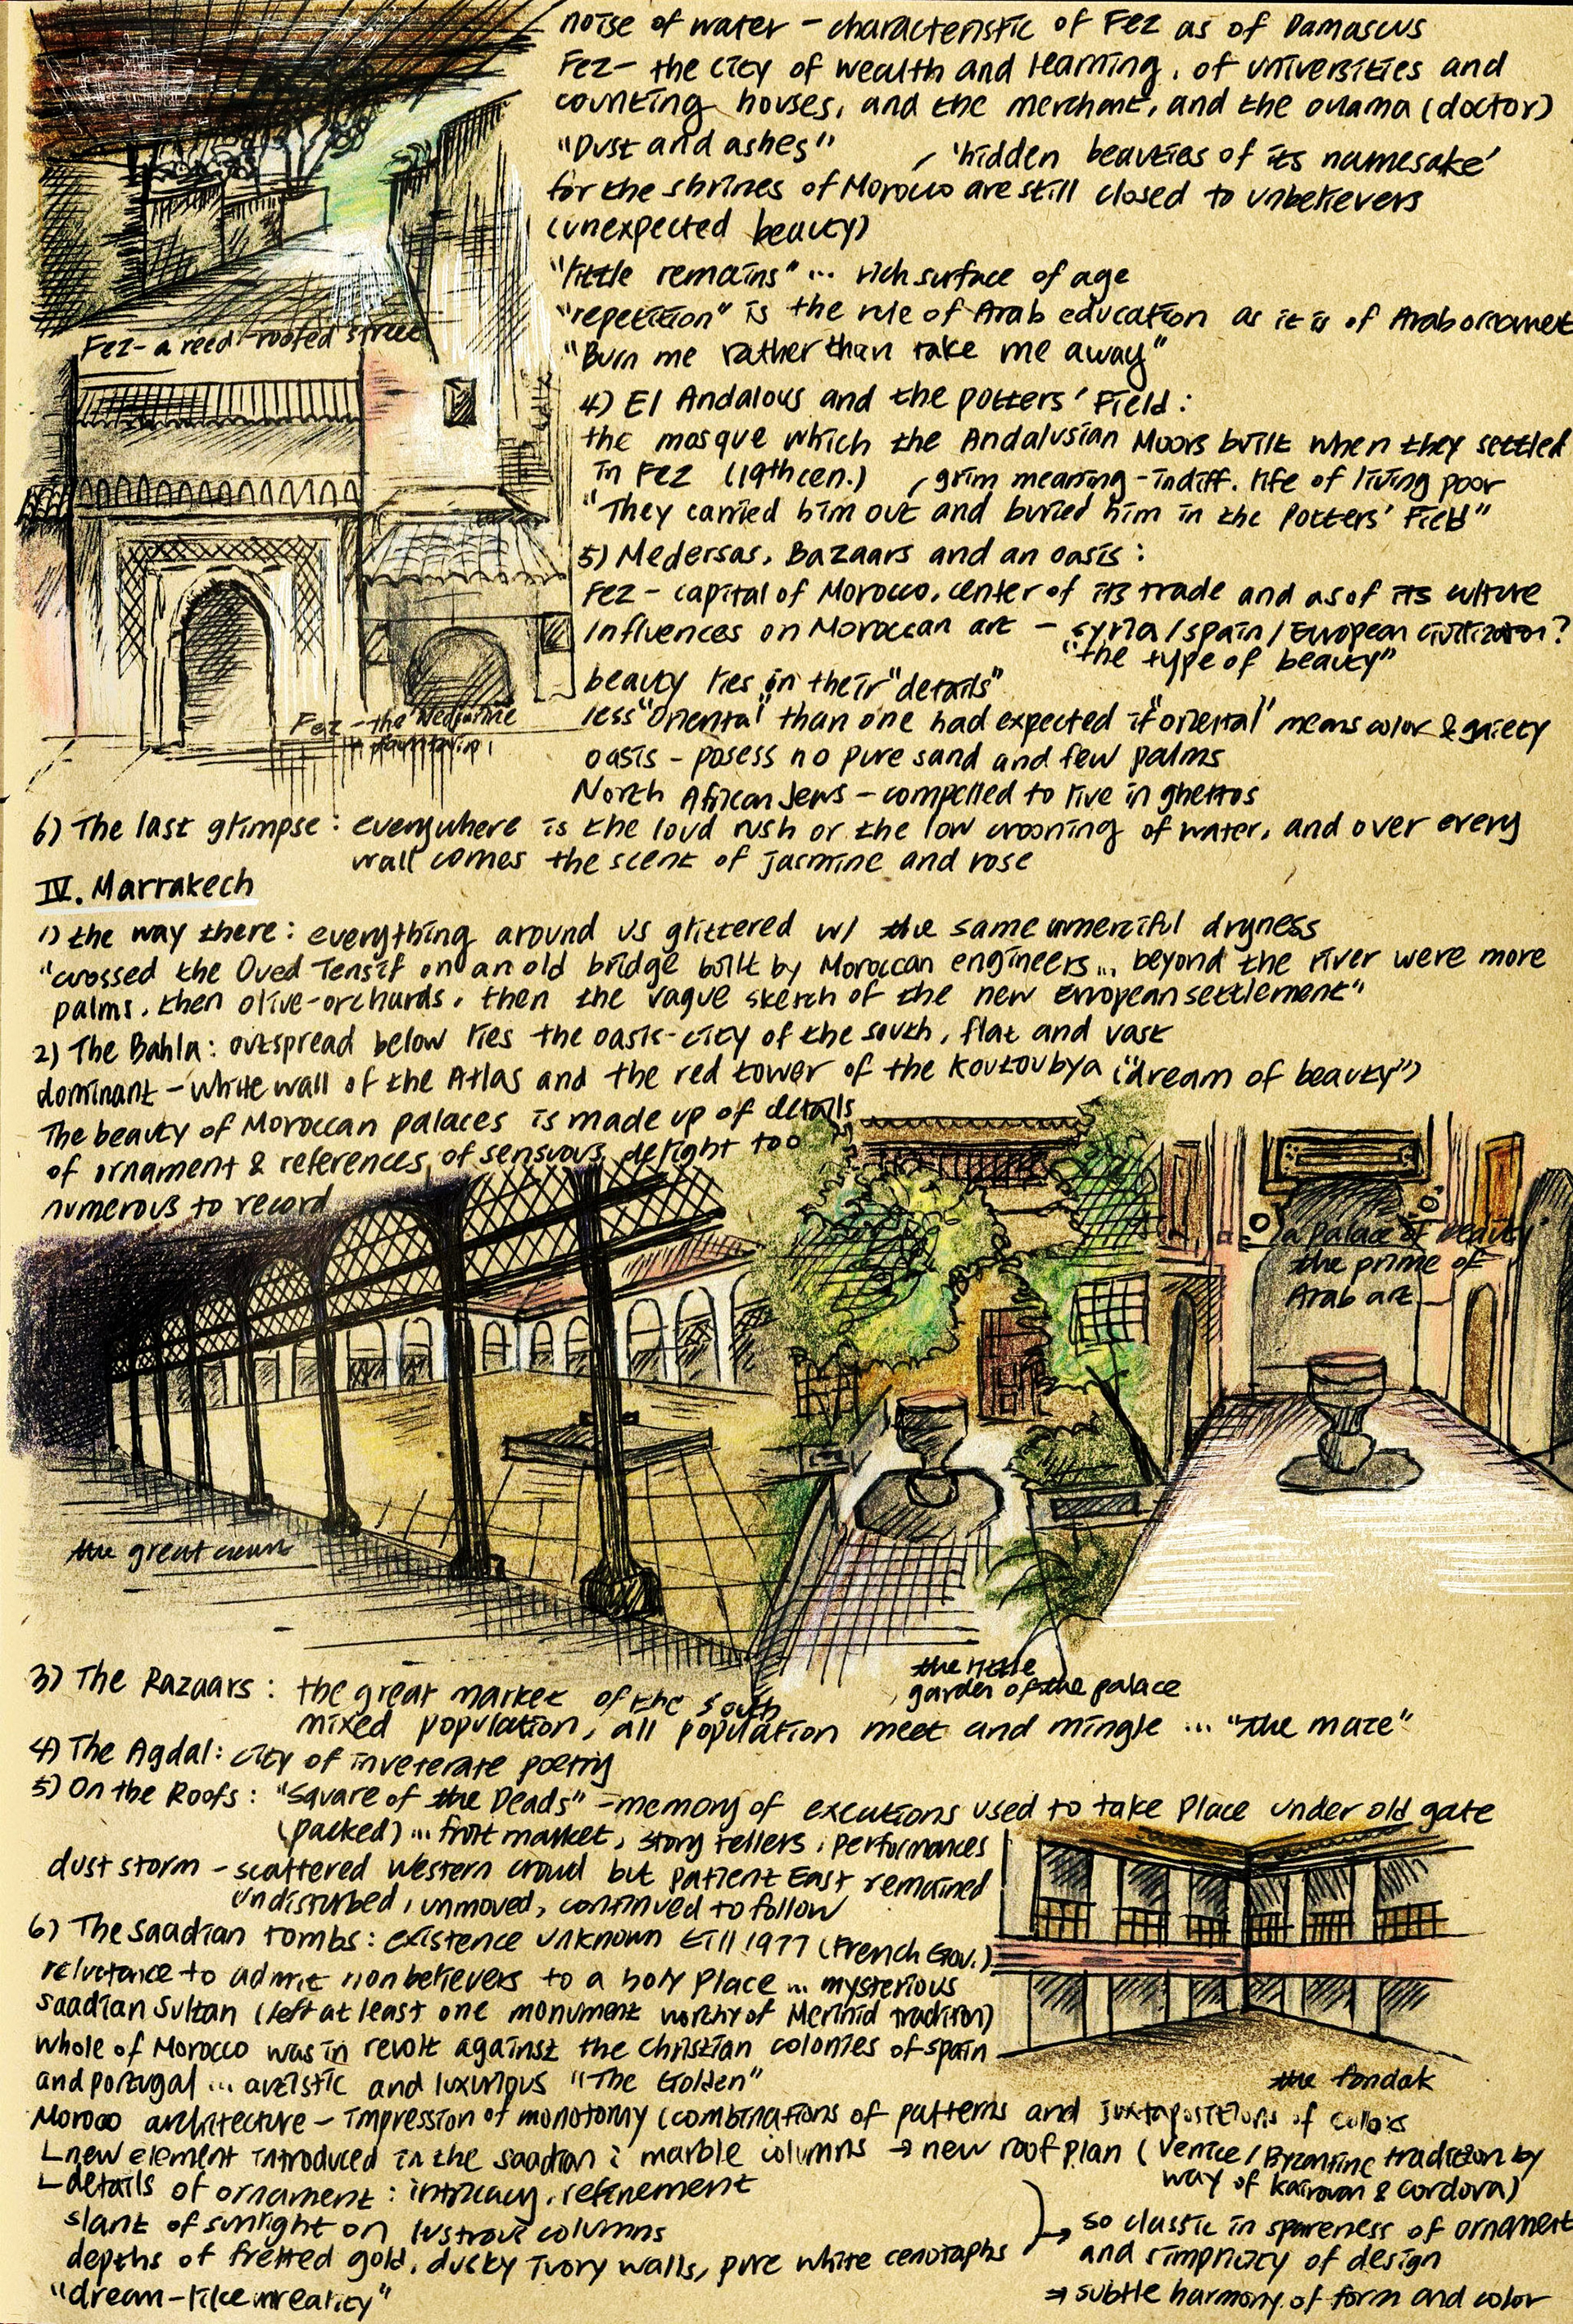 noise of water - characteristic of Fez as of Damascus
Fez - the city of wealth and learning, of universities and
counting houses, and the merchant, and the oulama (doctor)
"Dust and ashes" , 'hidden beauties of its namesake'
for the shrines of Morocco are still closed to unbelievers
(unexpected beauty)
"little remains" ... rich surface of age
"repetition" is the rule of Arab education as it is of Arab ornament
"Burn me rather than take me away"
Fez - a reed-roofed street
4) El Andalous and the potters' Field:
the mosque which the Andalusian Moors built when they settled
in Fez (19th cen.) , grim meaning - indiff. life of living poor
"They carried him out and buried him in the Potters' Field"
5) Medersas, Bazaars and an oasis:
Fez - capital of Morocco, center of its trade and as of its culture
influences on Moroccan art - syria/spain/European civilization?
"the type of beauty"
beauty lies in their "details"
less "Oriental" than one had expected if "oriental" means color & gaiety
oasis - posess no pure sand and few palms
North African Jews - compelled to live in ghettos
Fez - the Nedjarine
fountain
6) The last glimpse: everywhere is the loud rush or the low crooning of water, and over every
wall comes the scent of jasmine and rose
IV. Marrakech
1) the way there: everything around us glittered w/ the same unmerciful dryness
"crossed the Oued Tensif on an old bridge built by Moroccan engineers... beyond the river were more
palms, then olive-orchards, then the vague sketch of the new European settlement"
2) The Bahla: outspread below lies the oasis-city of the south, flat and vast
dominant - white wall of the Atlas and the red tower of the Koutoubya ("dream of beauty")
The beauty of Moroccan palaces is made up of details
of ornament & references of sensuous delight too
numerous to record
a palace of beauty
the prime of
Arab art
the great court
the little
garden of the palace
3) The Bazaars: the great market of the south
mixed population, all population meet and mingle ... "the maze"
4) The Agdal: city of inveterate poetry
5) On the Roofs: "Square of the Deads" - memory of excutions used to take place under old gate
(packed) ... fruit market, story tellers, performances
dust storm - scattered Western crowd but patient East remained
undisturbed, unmoved, continued to follow
6) The Saadian tombs: existence unknown till 1977 (French Gov.)
reluctance to admit nonbelievers to a holy place ... mysterious
Saadian Sultan (left at least one monument worthy of Merinid tradition)
whole of Morocco was in revolt against the christian colonies of spain
and portugal ... artistic and luxurious "The Golden"
the fondak
Moroco architecture - impression of monotomy (combinations of patterns and juxtapositions of colors
new element introduced in the saadian: marble columns → new roof plan (Venice/Byzantine tradition by
way of kairouan & cordova)
details of ornament: intricacy, refinement
slant of sunlight on lustrous columns
depths of fretted gold, dusky ivory walls, pure white cenotaphs
"dream-like unreality"
→ so classic in spareness of ornament
and simplicity of design
⇒ subtle harmony of form and color